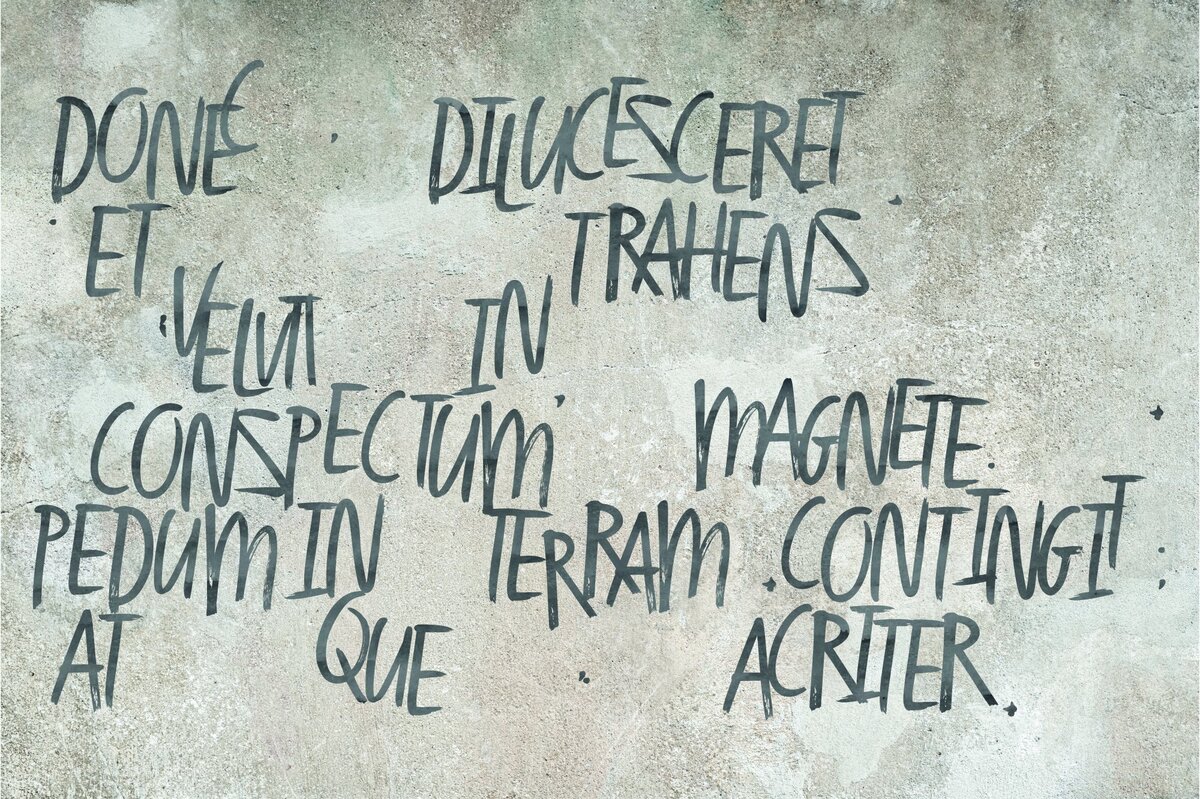 DONEC DILUCESCERET
ET TRAHENS
VELUT IN
CONSPECTUM MAGNETE.
PEDUM IN TERRAM CONTINGIT
AT QUE ACRITER.